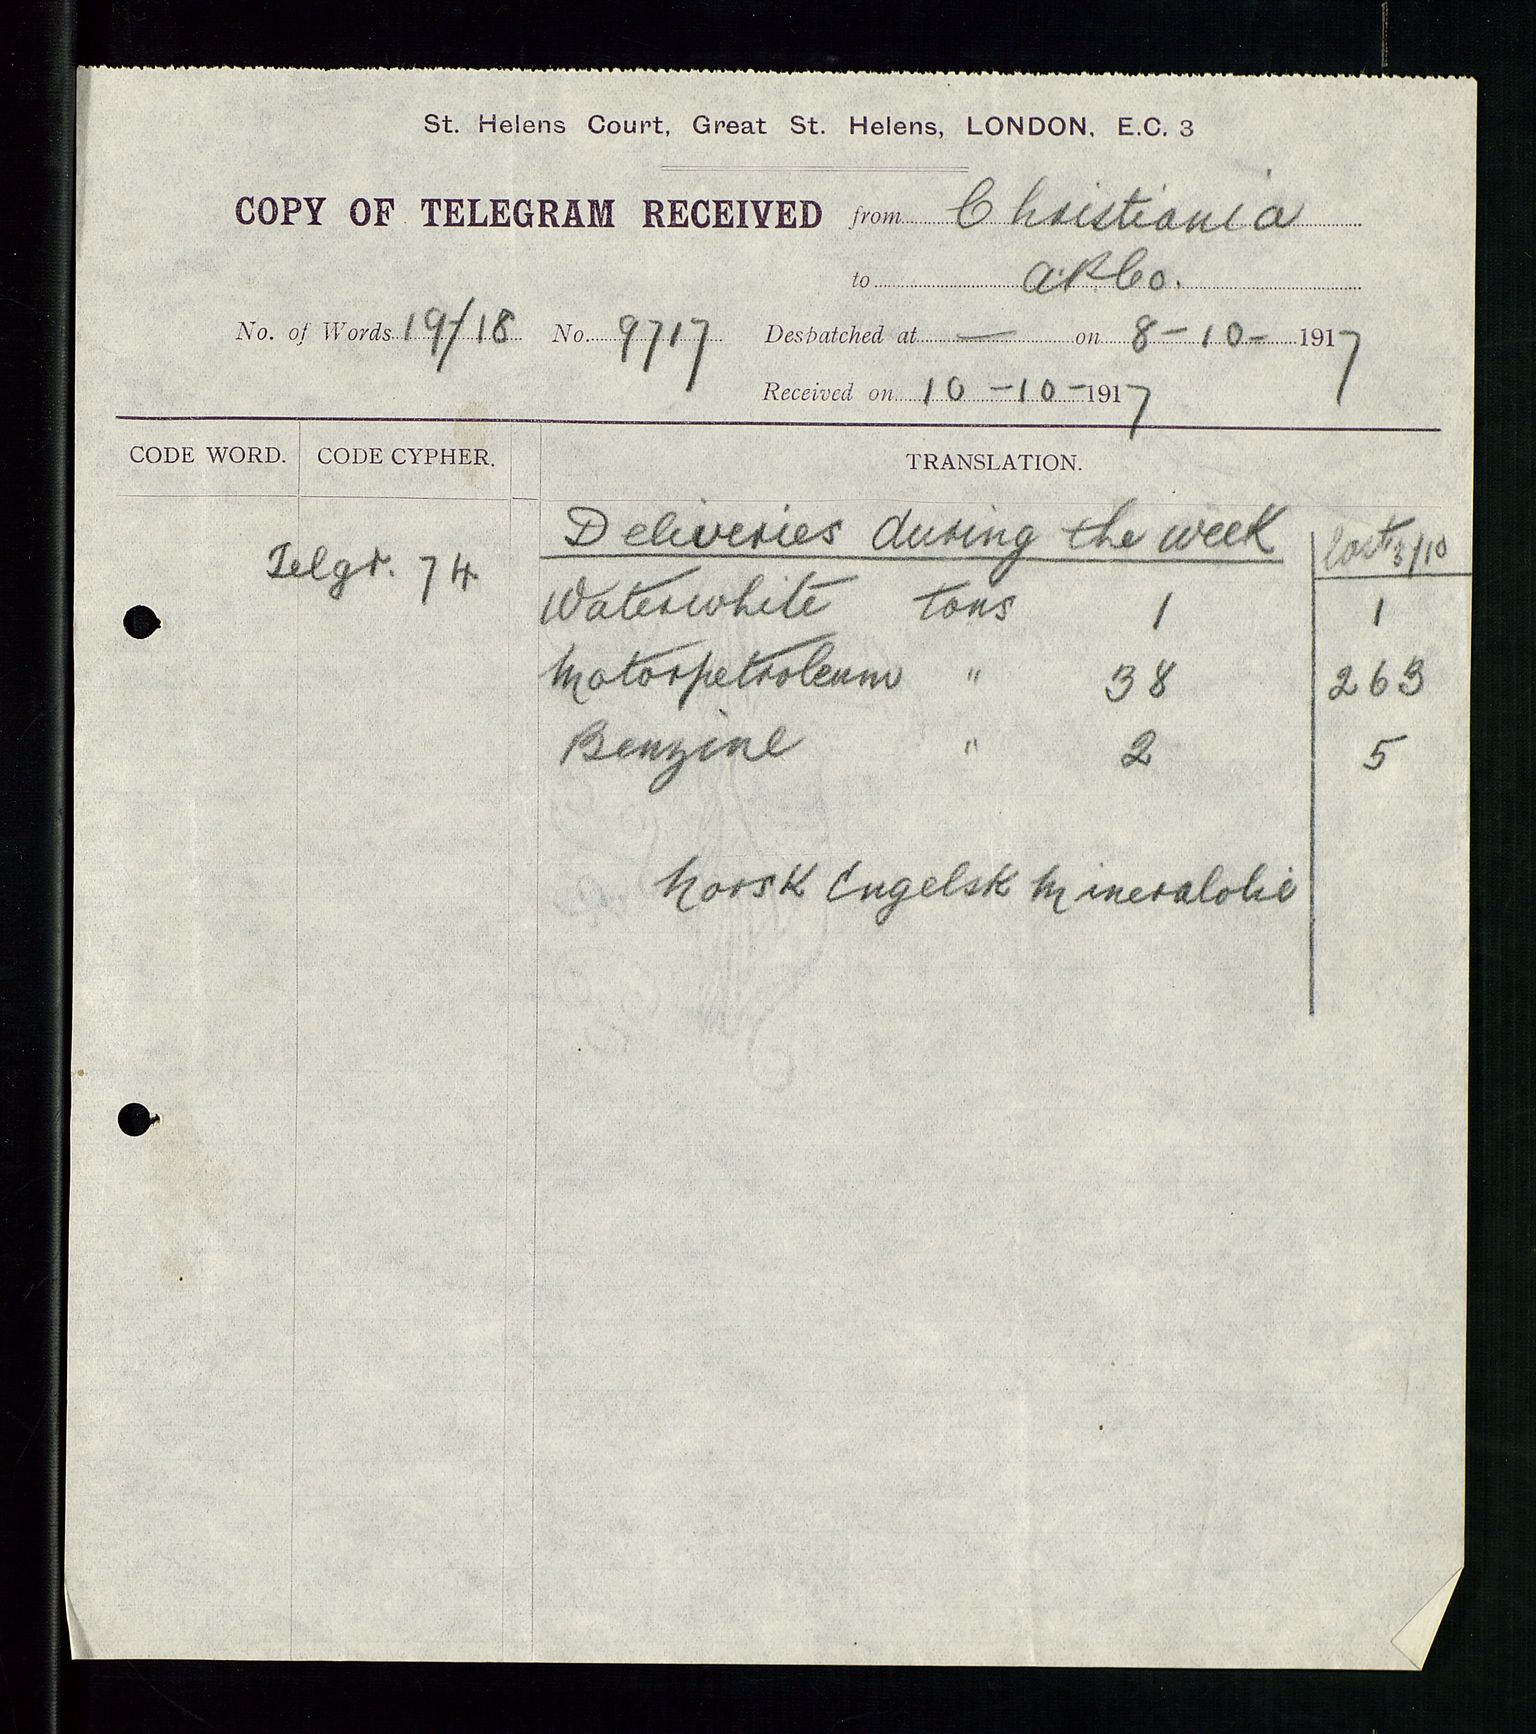 St. Helens Court, Great St. Helens, LONDON, E.C. 3
COPY OF TELEGRAM RECEIVED from Christiania
to A.P.Co.
No. of Words 19/18 No. 9717 Despatched at — on 8-10-1917
Received on 10-10-1917
CODE WORD. CODE CYPHER. TRANSLATION.
Deliveries during the week last 3/10
Telgr. 74
Waterwhite tons 1 1
Motorpetroleum " 38 263
Benzine " 2 5
Norsk Engelsk Mineralolie